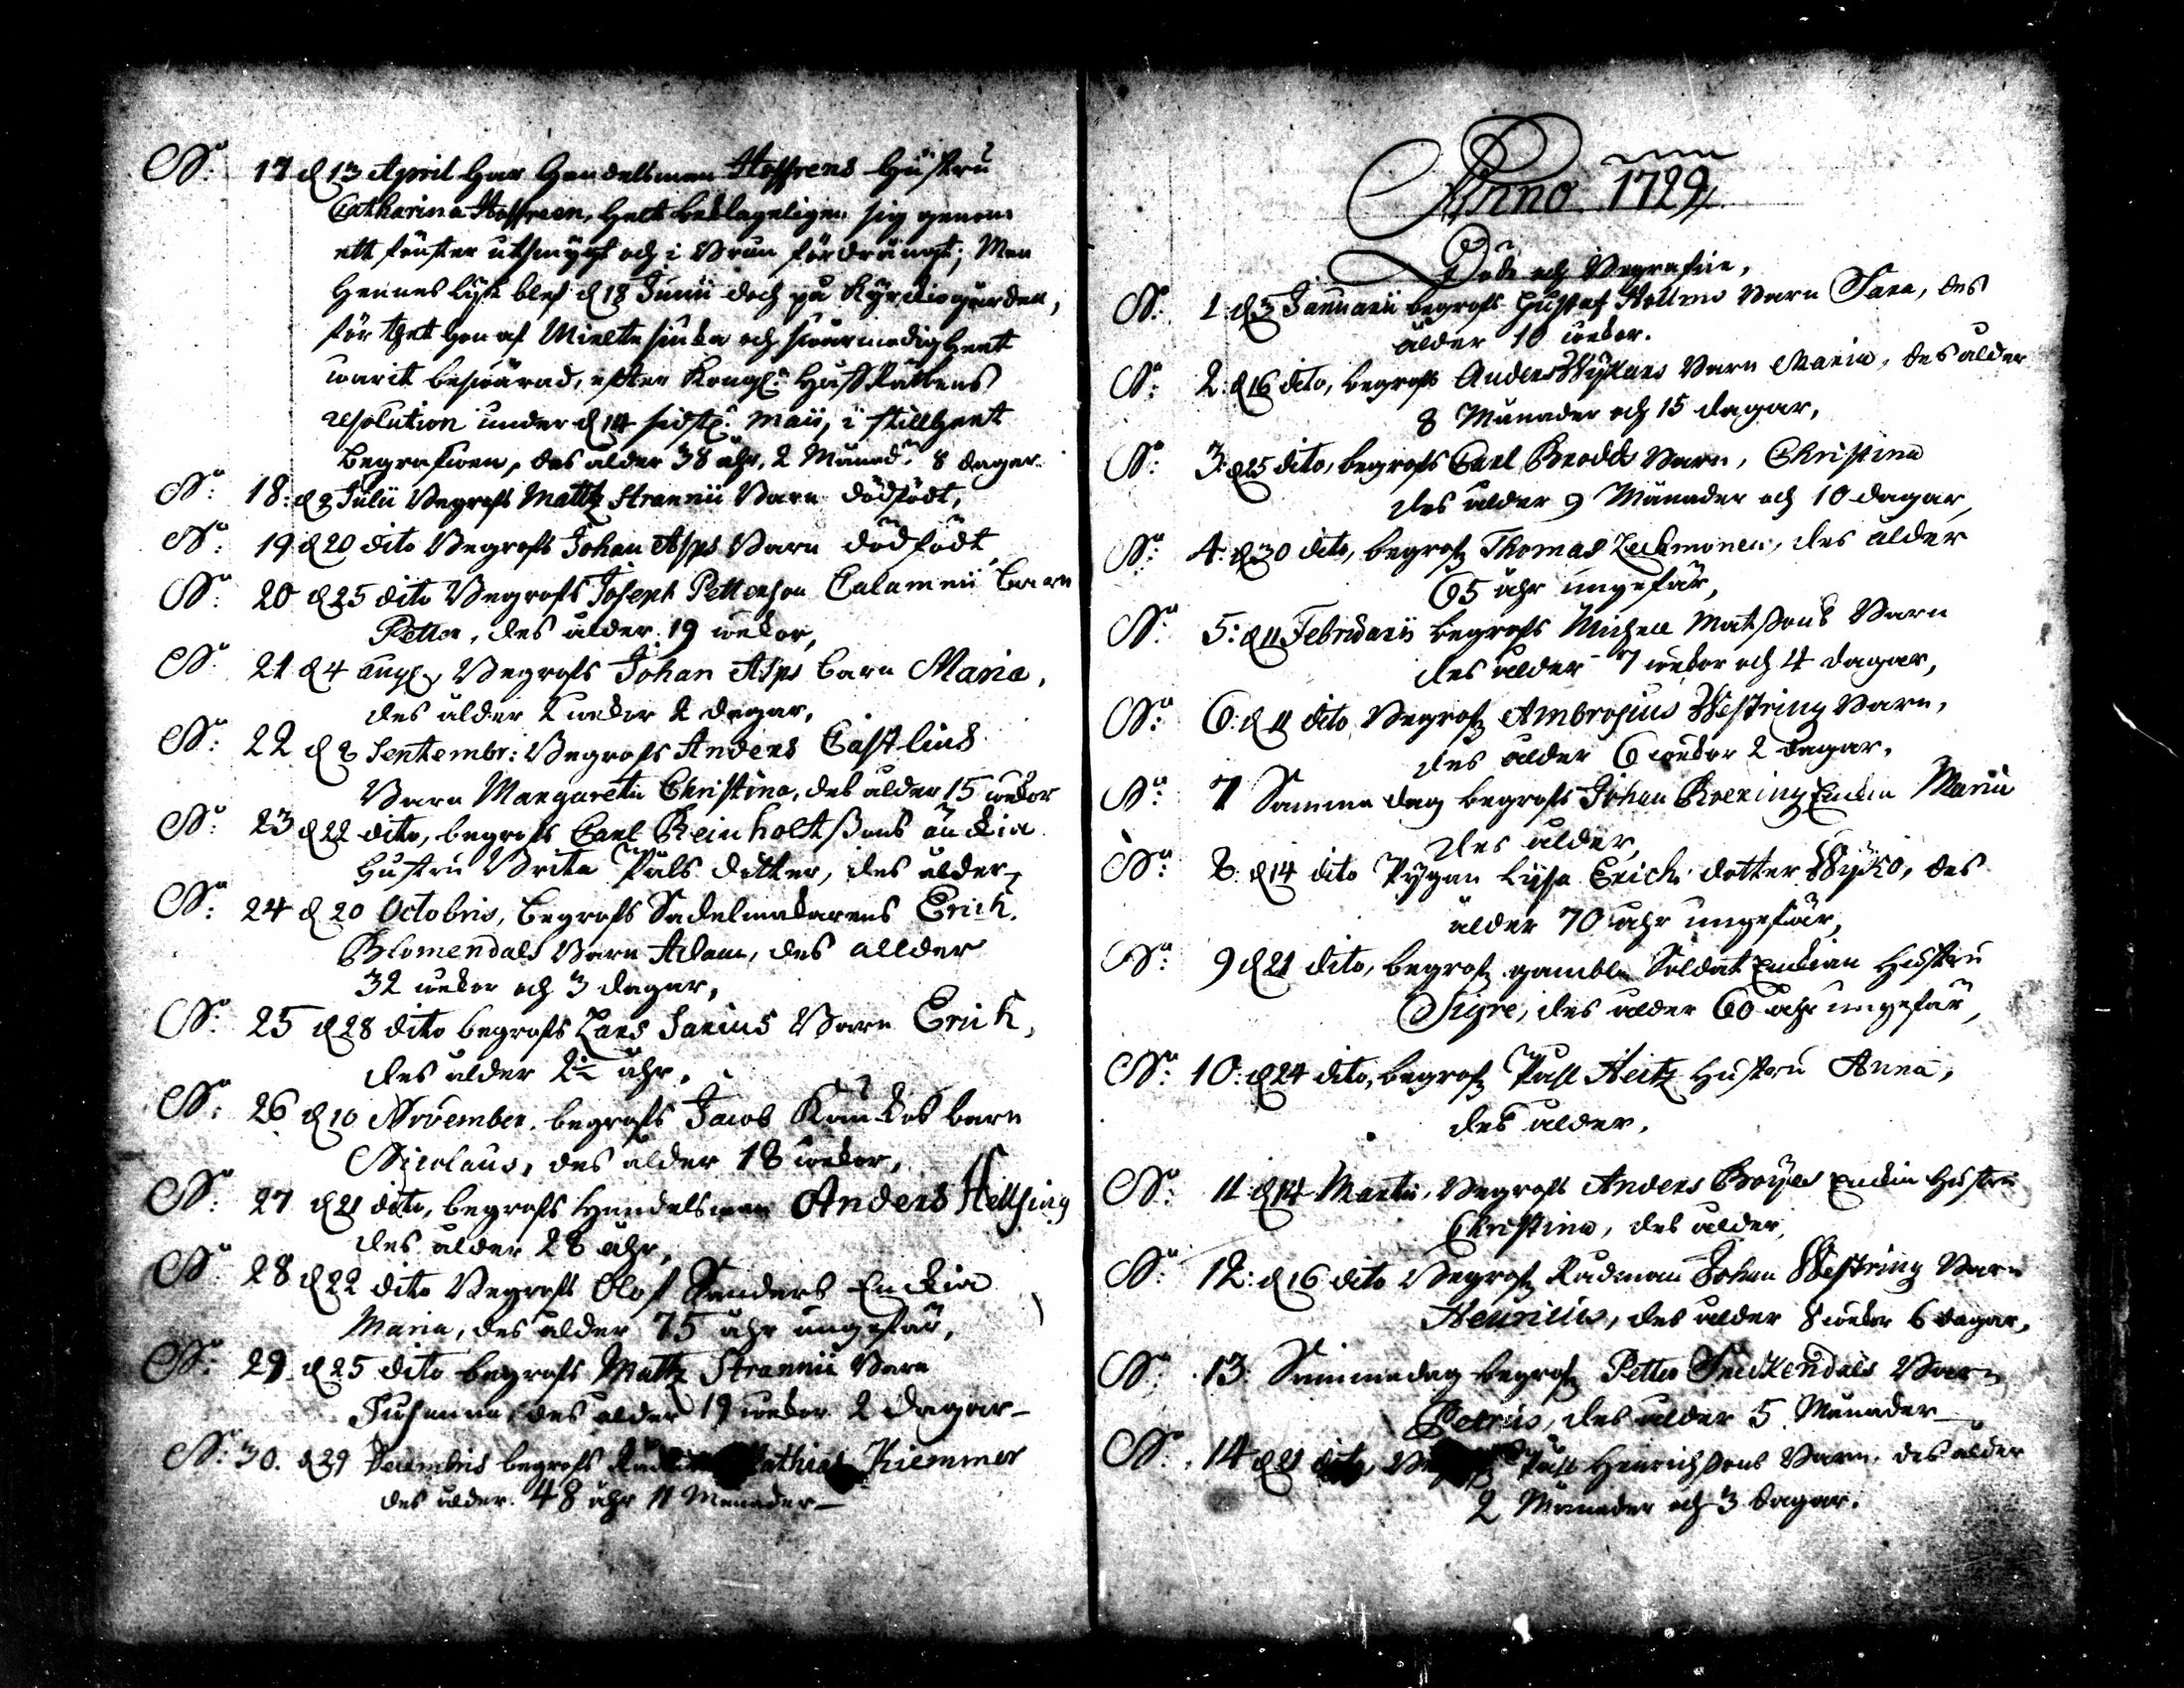 No: 17 d 13 April har Handelsman Hoffrens Hustru
Catharina Hoffreen, helt beklageligen sig genom
ett fenster utsmygt och i Brun fördränngt; Men
Hennes lijk blef d 18 Junii doch på Kyrkiogården,
för thet hon af Mieltesiuka och swarmodigheet
warit beswärad, efter Kongl: HoffRättens
resolution under d 14 sidstl: Maii, i stillheet
begrafwen, des ålder 38 åhr, 2 Månad: 8 dagar.
No: 18: d 3 Julii Begrofs Mattz Strannii Barn dödfödt,
No: 19 d 20 dito Begrofs Johan Asps Barn dödfödt,
No: 20 d 25 dito Begrofs Joseph Pettersson Calamnii barn
Petter, des ålder 19 wekor,
No: 21 d 4 Aug: Begrofs Johan Asps barn Maria,
des ålder 2 wekor 2 dagar,
No: 22 d 8 Septembr: Begrofs Anders Castlius
Barn Margareta Christina, des ålder 15 wekor
No: 23 d 22 dito, begrofs Carl Reinholtssons änckia
Hustru Brita Påls dotter, des ålder,
No: 24 d 20 Octobris, begrofs Sadelmakarens Erich
Blomendals Barn Adam, des ållder
32 wekor och 3 dagar,
No: 25 d 28 dito begrofs Lars Sarius Barn Erich,
des ålder 2½ åhr,
No: 26 d 10 November, begrofs Jacob Kaukos barn
Nicolaus, des ålder 18 wekor,
No: 27 d 21 dito, begrofs Handelsman Anders Hellsing
des ålder 28 åhr,
No: 28 d 22 dito Begrofs Olof Sanders Enckia
Maria, des ålder 75 åhr ungefär,
No: 29 d 25 dito begrofs Mattz Strannii Barn
Susanna, des ålder 19 wekor 2 dagar
No: 30. d 29 Decembris begrofs Mathias Kiemmer
des ålder 48 åhr 11 Månader
Anno 1729
Döde och Begrafne,
No: 1 d 3 Januarii begrofs Gustaf Barn Sara, des
ålder 10 wekor.
No: 2: d 16 dito, begrofs Anders Barn Maria, des ålder
8 Månader och 15 dagar,
No: 3: d 25 dito, begrofs Carl Brodds Barn, Christina
des ålder 9 Månader och 10 dagar,
No: 4: d 30 dito, begrofs Thomas Lechmonen, des ålder
65 åhr ungefär,
No: 5: d 11 Februarii begrofs Michell Matssons Barn
des ålder 7 wekor och 4 dagar,
No: 6: d 11 dito Begrofs Ambrosius Westring Barn,
des ålder 6 wekor 2 dagar,
No: 7 Samma dag begrofs Johan Roering Enckia Maria
des ålder,
No: 8: d 14 dito Pygan Lijsa Erichs dotter Wyko, des
ålder 70 åhr ungefär,
No: 9 d 21 dito, begrofs gamble Soldat Enckian Hustru
Sigre, des ålder 60 åhr ungefär,
No: 10: d 24 dito, begrofs Påll Heitz Hustru Anna,
des ålder,
No: 11 d 14 Martii, Begrofs Anders Boijes Enckia Hustru
Christina, des ålder,
No: 12: d 16 dito Begrofs Rådman Johan Westring Barn
Henricus, des ålder 8 wekor 6 dagar,
No: 13 Samma dag begrofs Petter Barn
Petrus, des ålder 5 Månader
No: 14 d 21 dito, Påll Henrichssons Barn, des ålder
2 Månader och 3 dagar.